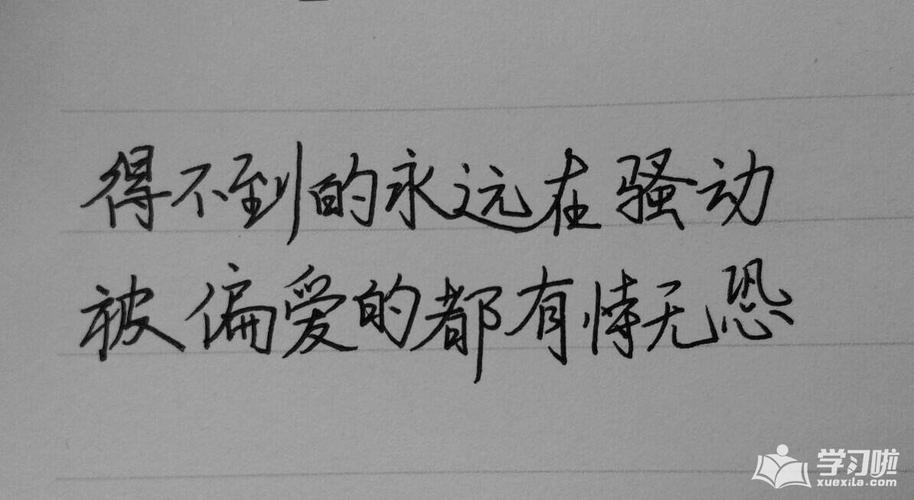 得不到的永远在骚动
被偏爱的都有恃无恐
学习啦
xuexila.com